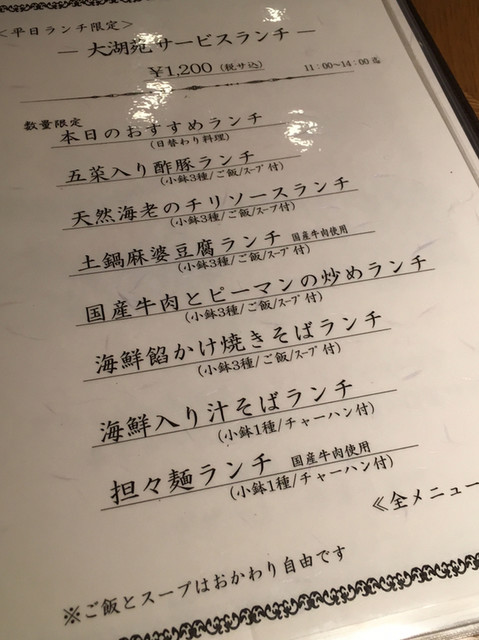 ＜平日ランチ限定＞
― 大湖苑 サービスランチ ―
¥1,200 (税サ込) 11:00〜14:00迄
数量限定
本日のおすすめランチ
(日替わり料理)
五菜入り酢豚ランチ
(小鉢3種/ご飯/スープ付)
天然海老のチリソースランチ
(小鉢3種/ご飯/スープ付)
土鍋麻婆豆腐ランチ 国産牛肉使用
(小鉢3種/ご飯/スープ付)
国産牛肉とピーマンの炒めランチ
(小鉢3種/ご飯/スープ付)
海鮮餡かけ焼きそばランチ
(小鉢3種/ご飯/スープ付)
海鮮入り汁そばランチ
(小鉢1種/チャーハン付)
担々麺ランチ 国産牛肉使用
(小鉢1種/チャーハン付)
≪全メニュー
※ご飯とスープはおかわり自由です